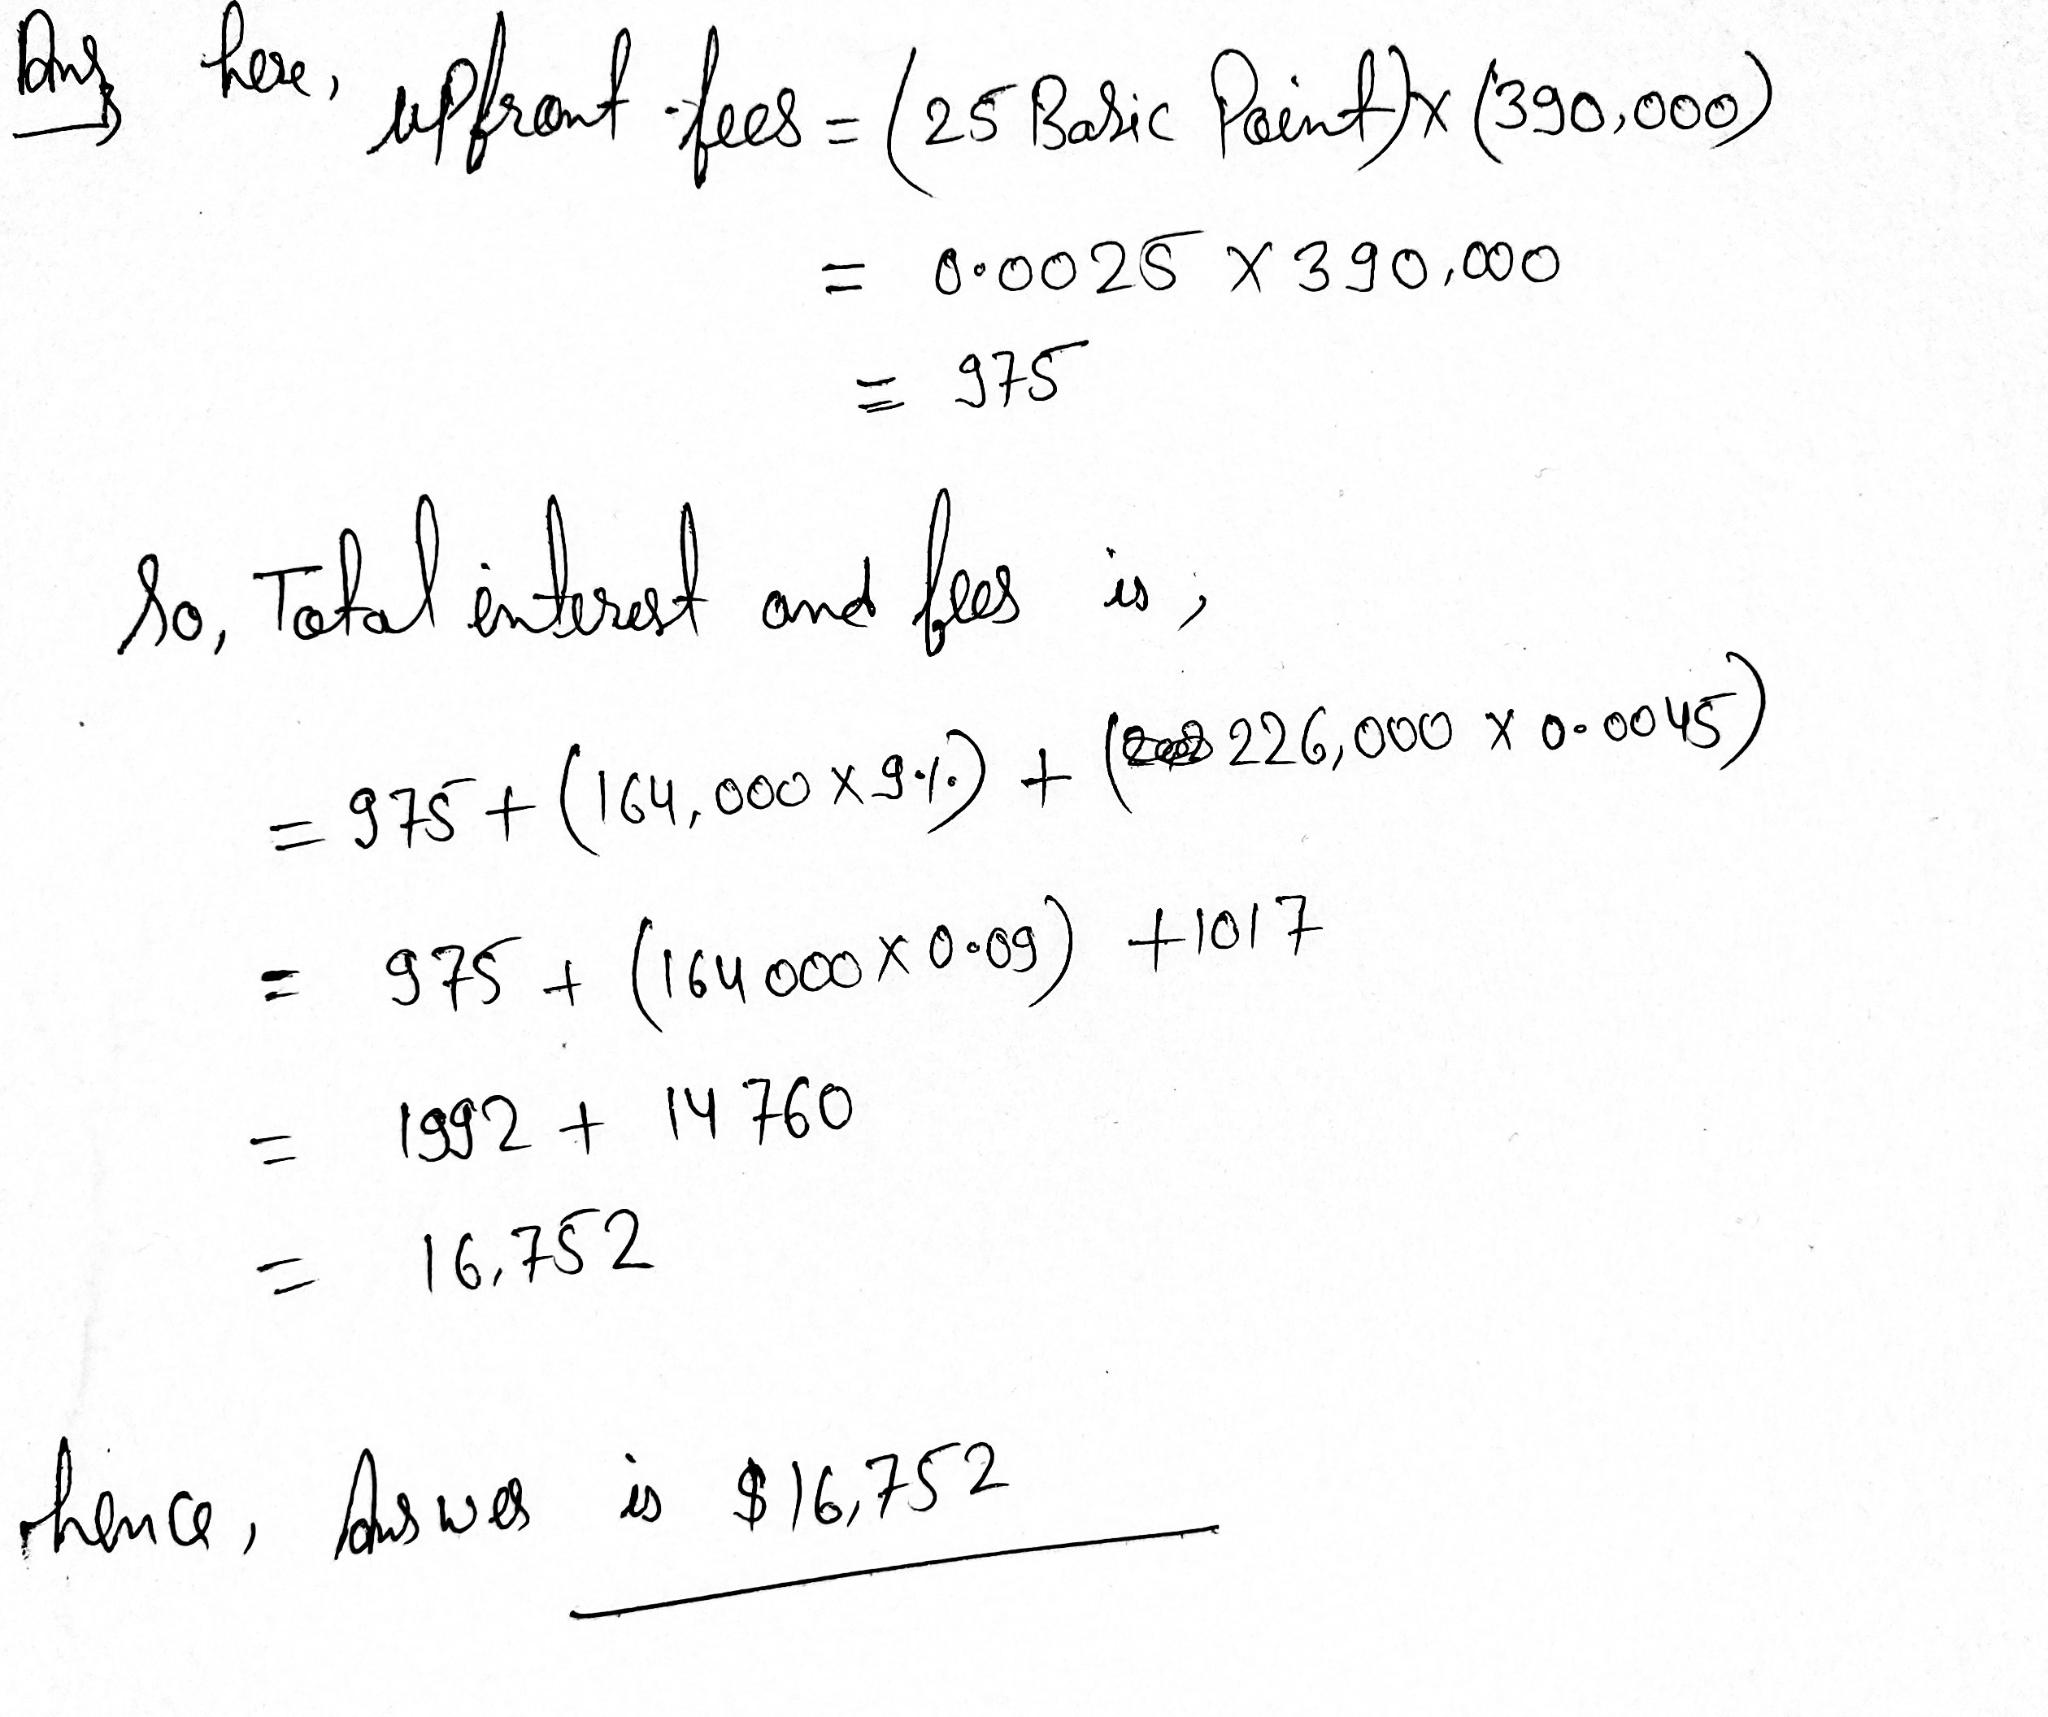 Ans here, upfront fees = (25 Basic Point) x (390,000)
= 0.0025 x 390,000
= 975
So, Total interest and fees is,
= 975 + (164,000 x 9%) + (226,000 x 0.0045)
= 975 + (164000 x 0.09) + 1017
= 1992 + 14760
= 16,752
hence, Answer is $16,752